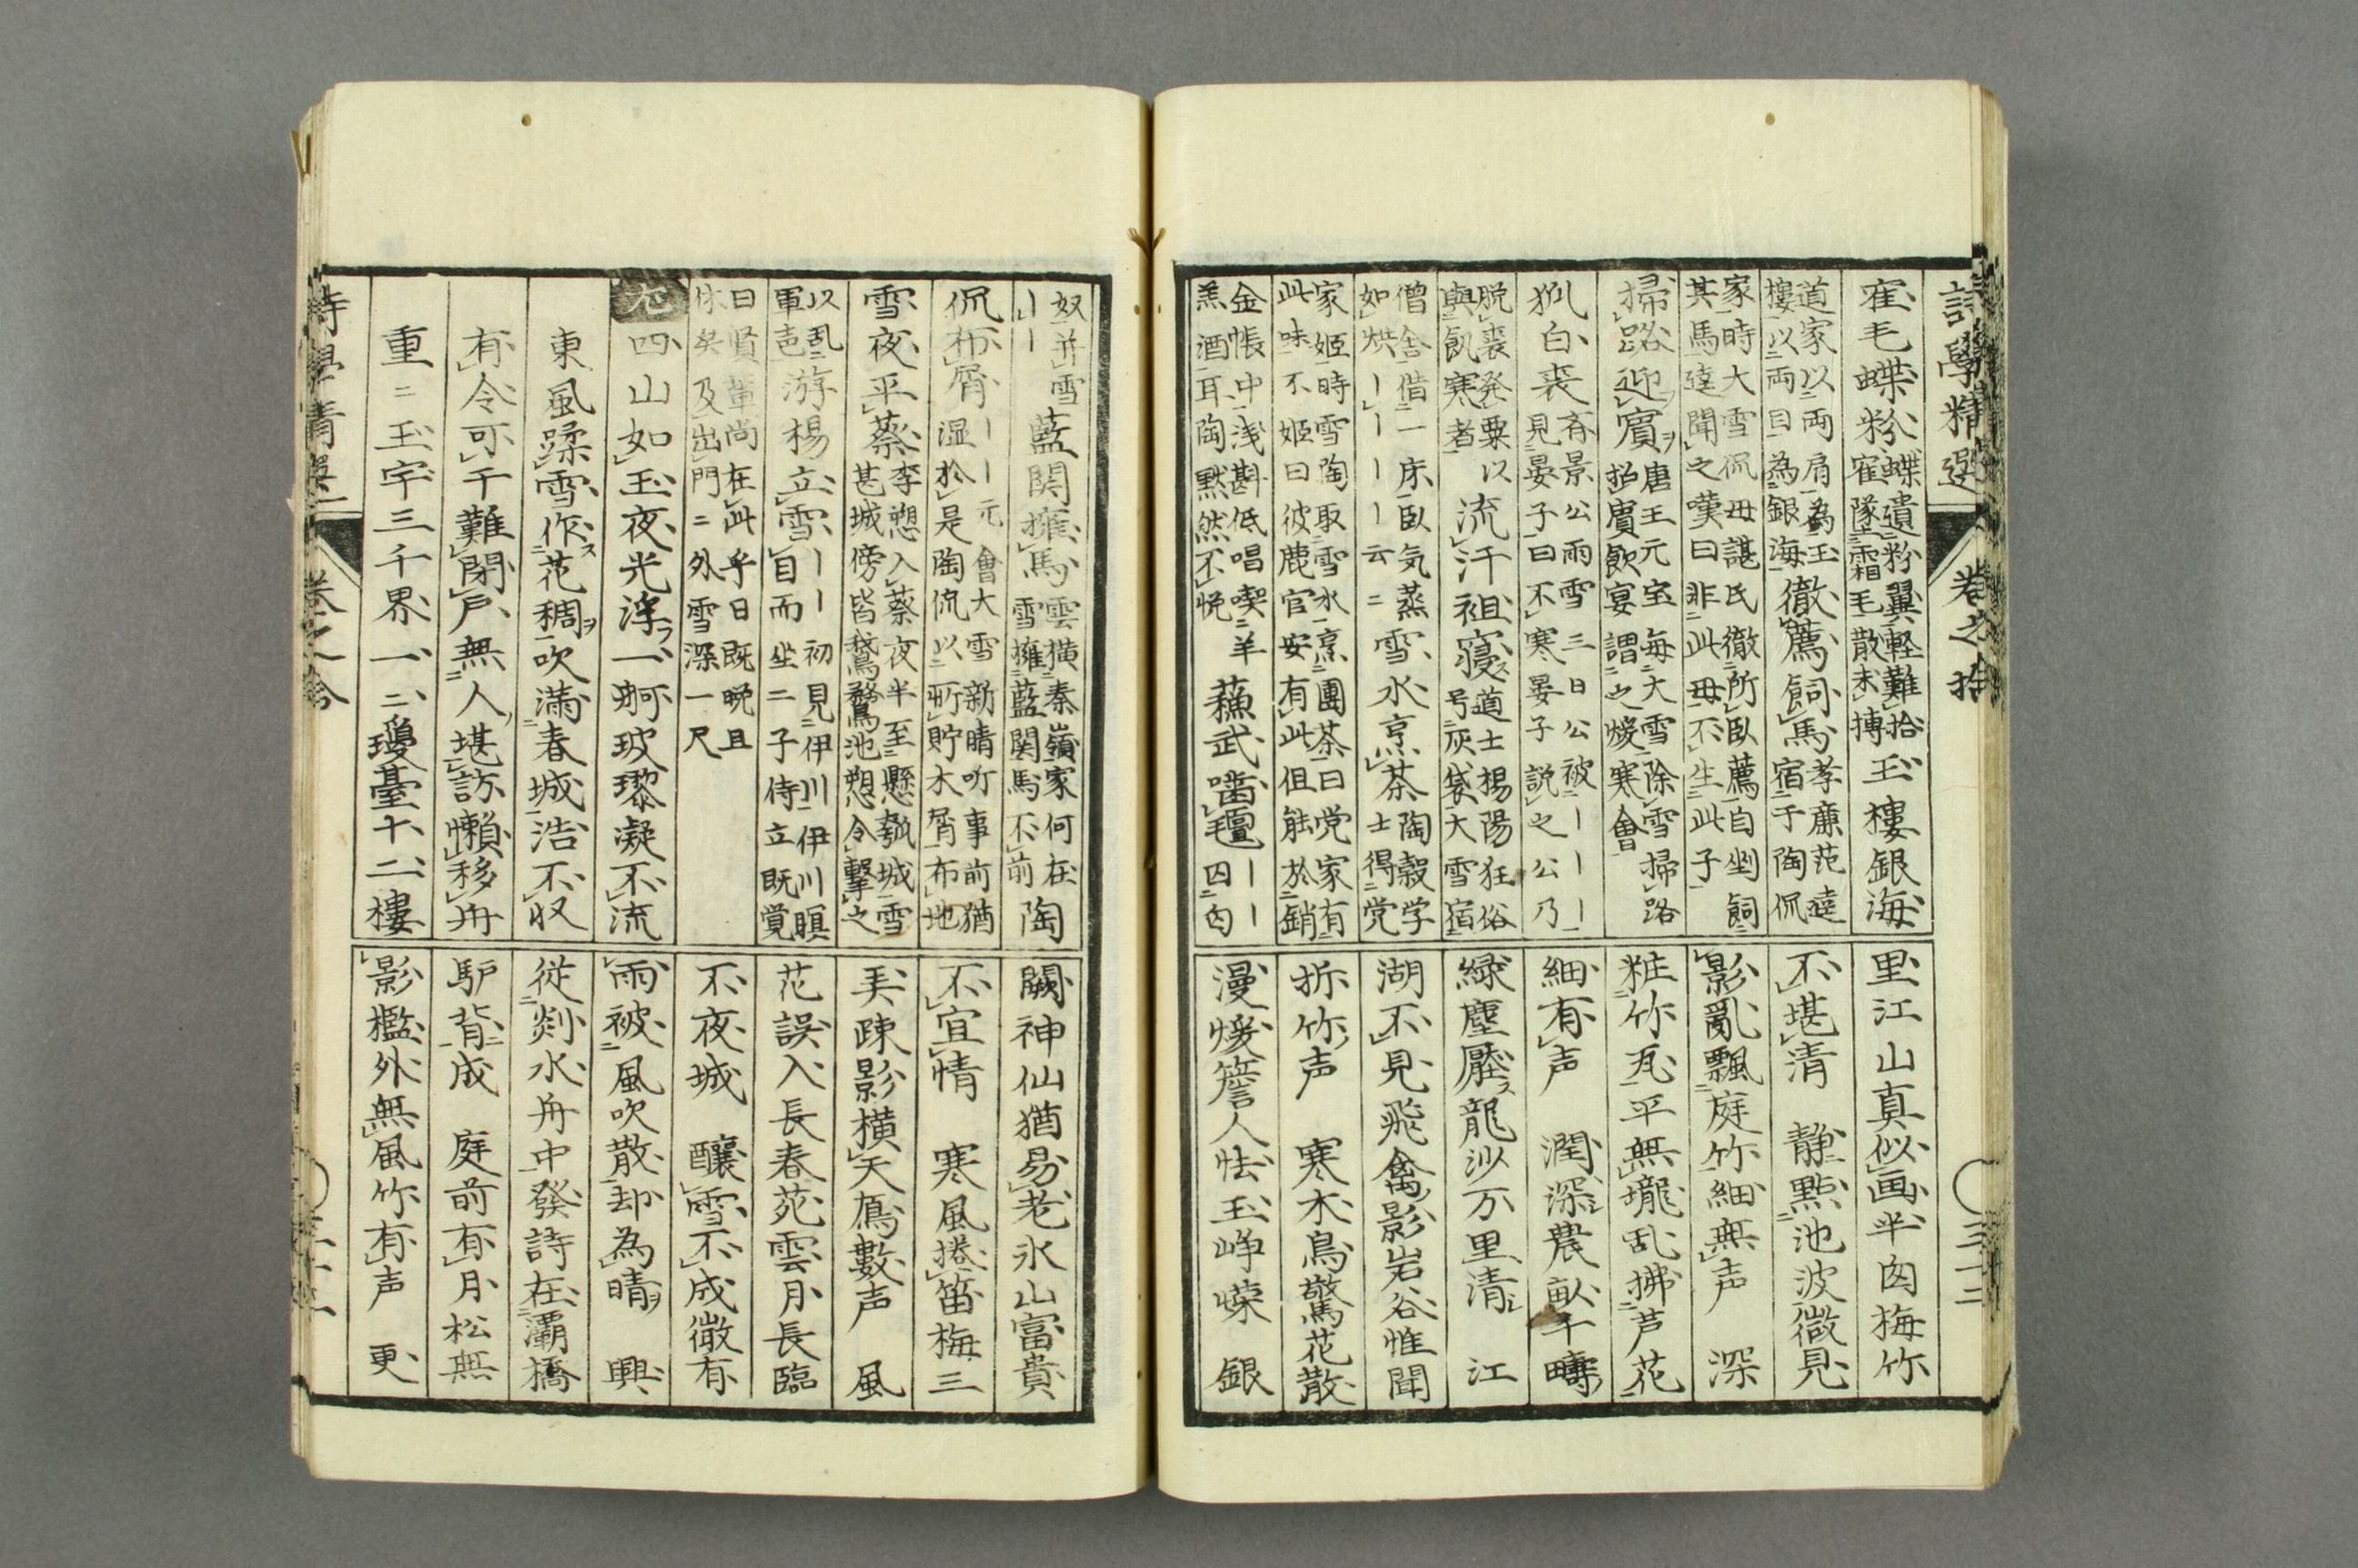 詩學精選 卷之拾 三十二
寉毛蝶粉 蝶遺粉翼軽難拾 寉墜霜毛散未摶 玉樓銀海
道家以両肩為玉樓以両目為銀海 徹薦飼馬 孝廉范逵宿于陶侃
家時大雪侃母諶氏徹所臥薦自剉飼其馬逵聞之嘆曰非此母不生此子
掃路迎賓 唐王元宝毎大雪除雪掃路招賓飲宴謂之煖寒會
狐白裘 斉景公雨雪三日公被ーーー見晏子曰不寒晏子説之公乃
脱裘発粟以與飢寒者 流汗袒寝 道士楊陽狂俗号灰袋大雪宿
僧舎借一床臥気蒸如烘ーーーー云云 雪水烹茶 陶穀学士得党
家姫時雪陶取雪水烹團茶曰党家有此味不姫曰彼麁官安有此但能於銷
金帳中浅斟低唱喫羊羔酒耳陶黙然不悦 蘓武噛氊 ーー四内
里江山真似画半囪梅竹
不堪清 静點池波微見
影亂飄庭竹細無声 深
粧竹瓦平無壠乱拂芦花
細有声 潤深農畝千疇
緑塵壓龍沙万里清 江
湖不見飛禽影岩谷惟聞
折竹声 寒木鳥驚花散
漫煖簷人怯玉崢嶸 銀
奴并雪ーー 藍関擁馬 雲横秦嶺家何在雪擁藍関馬不前 陶
侃布屑 ーーー元會大雪新晴庁事前猶湿於是陶侃以所貯木屑布地
雪夜平蔡 李愬入蔡夜半至懸瓠城雪甚城傍皆鵞鶩池愬令撃之
以乱軍声 游楊立雪 ーー初見伊川伊川瞑目而坐二子侍立既覚
曰賢輩尚在此乎日既晩且休矣及出門二外雪深一尺
四山如玉夜光浮一舸玻瓈凝不流
東風蹂雪作花稠吹満春城浩不収
有令可干難閉戸無人堪訪懶移舟
重二玉宇三千界一二瓊臺十二樓
闕神仙猶易老氷山富貴
不宜情 寒風捲笛梅三
弄疎影横天鳫數声 風
花誤入長春苑雲月長臨
不夜城 釀雪不成微有
雨被風吹散却為晴 興
從剡水舟中發詩在灞橋
馿背成 庭前有月松無
影檻外無風竹有声 更
詩學精選 卷之拾